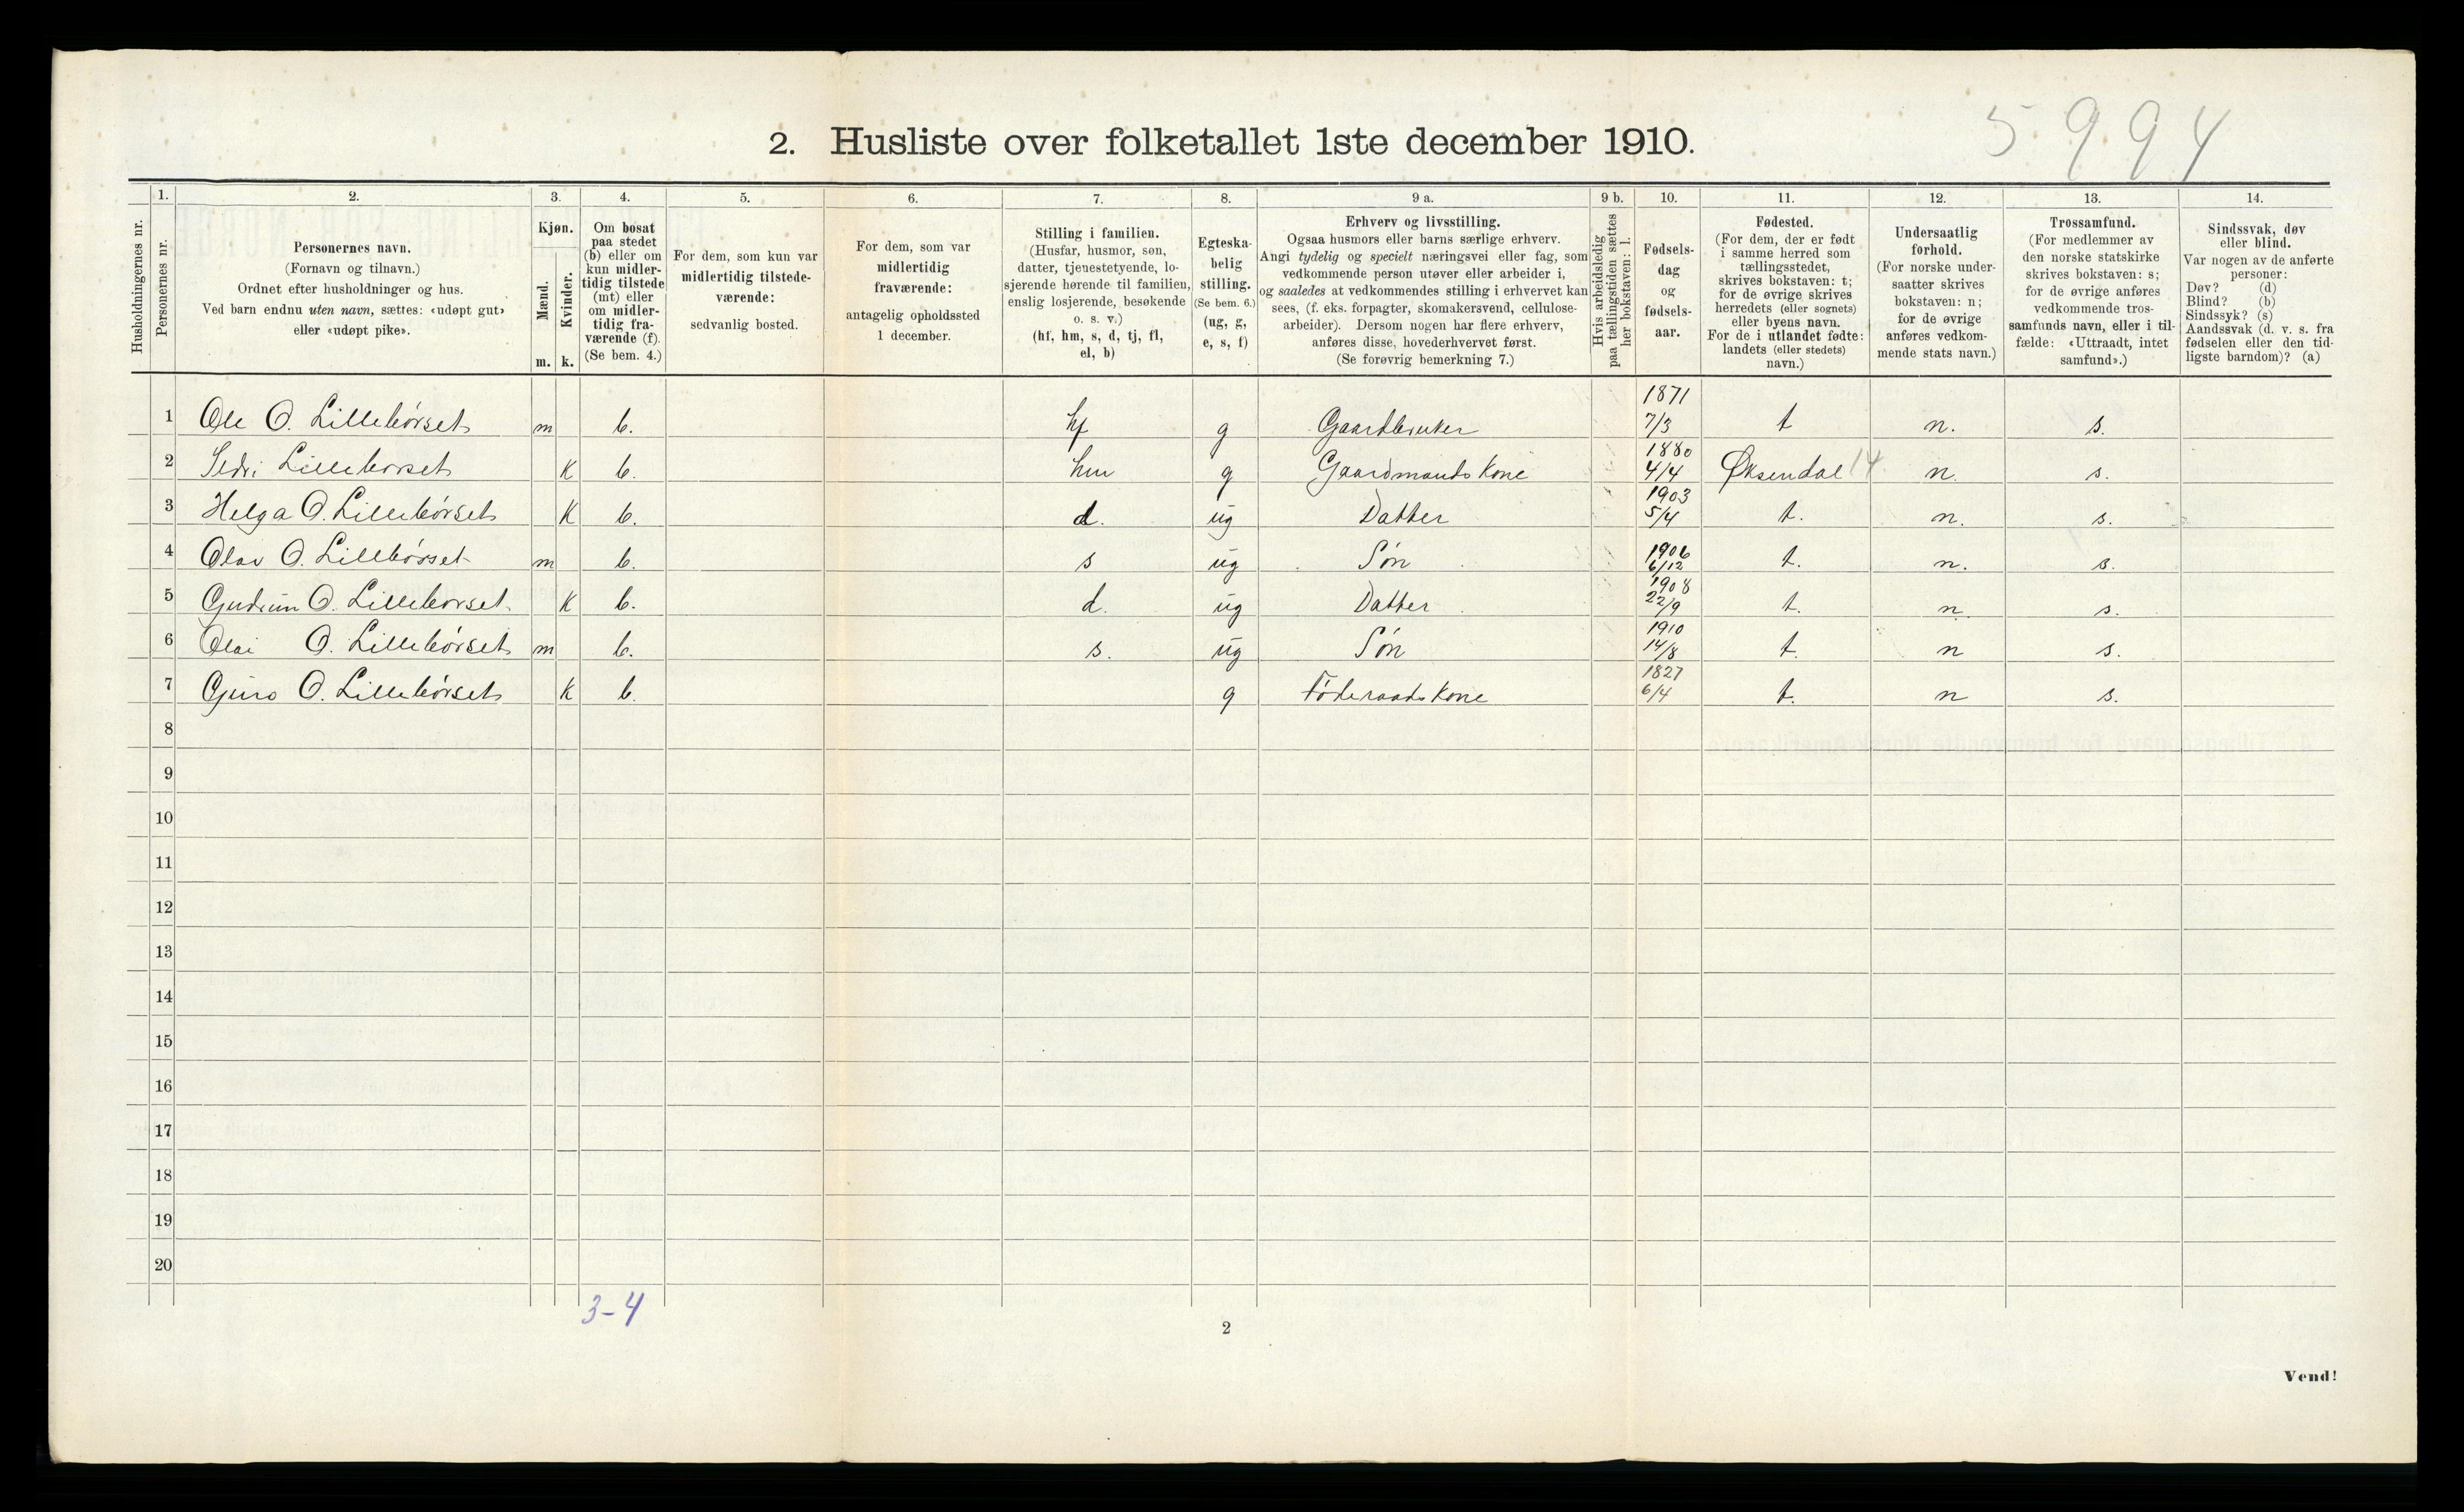 5994
2. Husliste over folketallet 1ste december 1910.
Husholdningernes nr.
1.
Personernes nr.
2.
Personernes navn.
(Fornavn og tilnavn.)
Ordnet efter husholdninger og hus.
Ved barn endnu uten navn, sættes: «udøpt gut»
eller «udøpt pike».
3.
Kjøn.
Mænd.
m.
Kvinder.
k.
4.
Om bosat
paa stedet
(b) eller om
kun midler-
tidig tilstede
(mt) eller
om midler-
tidig fra-
værende (f).
(Se bem. 4.)
5.
For dem, som kun var
midlertidig tilstede-
værende:
sedvanlig bosted.
6.
For dem, som var
midlertidig
fraværende:
antagelig opholdssted
1 december.
7.
Stilling i familien.
(Husfar, husmor, søn,
datter, tjenestetyende, lo-
sjerende hørende til familien,
enslig losjerende, besøkende
o. s. v.)
(hf, hm, s, d, tj, fl,
el, b)
8.
Egteska-
belig
stilling.
(Se bem. 6.)
(ug, g,
e, s, f)
9 a.
Erhverv og livsstilling.
Ogsaa husmors eller barns særlige erhverv.
Angi tydelig og specielt næringsvei eller fag, som
vedkommende person utøver eller arbeider i,
og saaledes at vedkommendes stilling i erhvervet kan
sees, (f. eks. forpagter, skomakersvend, cellulose-
arbeider). Dersom nogen har flere erhverv,
anføres disse, hovederhvervet først.
(Se forøvrig bemerkning 7.)
9 b.
Hvis arbeidsledig
paa tællingstiden sættes
her bokstaven: l.
10.
Fødsels-
dag
og
fødsels-
aar.
11.
Fødested.
(For dem, der er født
i samme herred som
tællingsstedet,
skrives bokstaven: t;
for de øvrige skrives
herredets (eller sognets)
eller byens navn.
For de i utlandet fødte:
landets (eller stedets)
navn.)
12.
Undersaatlig
forhold.
(For norske under-
saatter skrives
bokstaven: n;
for de øvrige
anføres vedkom-
mende stats navn.)
13.
Trossamfund.
(For medlemmer av
den norske statskirke
skrives bokstaven: s;
for de øvrige anføres
vedkommende tros-
samfunds navn, eller i til-
fælde: «Uttraadt, intet
samfund».)
14.
Sindssvak, døv
eller blind.
Var nogen av de anførte
personer:
Døv? (d)
Blind? (b)
Sindssyk? (s)
Aandssvak (d. v. s. fra
fødselen eller den tid-
ligste barndom)? (a)
1 Ole O. Lillebørset m b. hf g Gaardbruker 1871 7/3 t n. s.
2 Sedri Lilleborset K b. hm g Gaardmands Kone 1880 4/4 Øksendal 14 n. s.
3 Helga O. Lillebørset K b. d. ug Datter 1903 5/4 t. n. s.
4 Olav O. Lillebørset m b. s ug Søn 1906 6/12 t. n. s.
5 Gudrun O. Lilleborset K b. d. ug Datter 1908 22/9 t. n. s.
6 Olai O. Lillebørset m b. s. ug Søn 1910 14/8 t. n s.
7 Guro O. Lillebørset K b. g Føderaads Kone 1827 6/4 t. n s.
8
9
10
11
12
13
14
15
16
17
18
19
20
3-4
2
Vend!